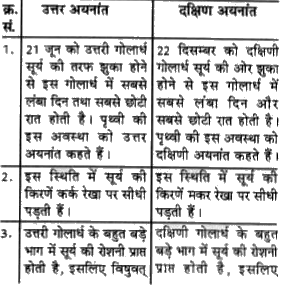 क्र. सं. उत्तर अयनांत दक्षिण अयनांत
1. 21 जून को उत्तरी गोलार्ध
सूर्य की तरफ झुका होने
से इस गोलार्ध में सबसे
लंबा दिन तथा सबसे छोटी
रात होती है। पृथ्वी की
इस अवस्था को उत्तर
अयनांत कहते हैं।
22 दिसम्बर को दक्षिणी
गोलार्ध सूर्य की ओर झुका
होने से इस गोलार्ध में
सबसे लंबा दिन और
सबसे छोटी रात होती है।
पृथ्वी की इस अवस्था को
दक्षिणी अयनांत कहते हैं।
2. इस स्थिति में सूर्य की
किरणें कर्क रेखा पर सीधी
पड़ती हैं।
इस स्थिति में सूर्य की
किरणें मकर रेखा पर सीधी
पड़ती हैं।
3. उत्तरी गोलार्ध के बहुत बड़े
भाग में सूर्य की रोशनी प्राप्त
होती है, इसलिए विषुवत्
दक्षिणी गोलार्ध के बहुत
बड़े भाग में सूर्य की रोशनी
प्राप्त होती है, इसलिए